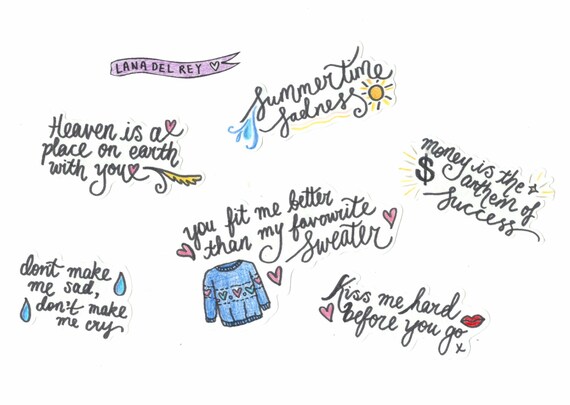 LANA DEL REY
Summertime
Sadness
Heaven is a
place on earth
with you
money is the
$ anthem of
success
you fit me better
than my favourite
sweater
don't make
me sad,
don't make
me cry
Kiss me hard
before you go
x